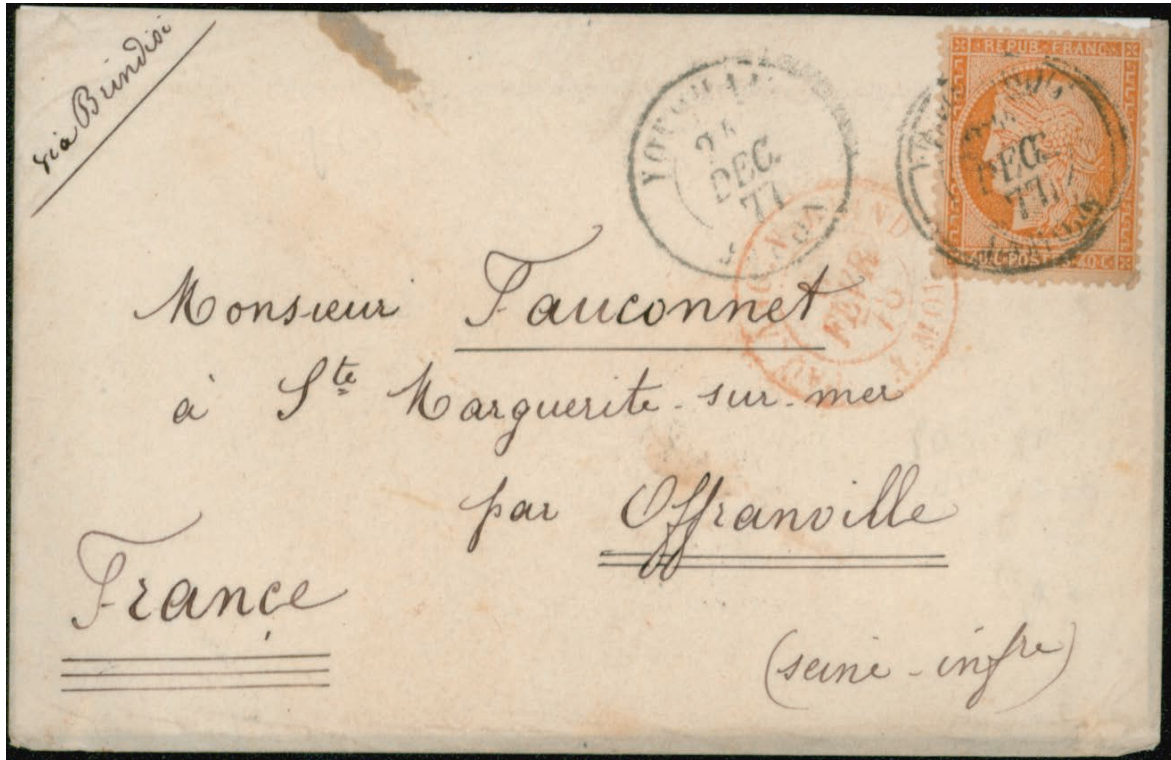 via Brindisi
REPUB. FRANC.
DEC.
77
POSTES 40 C.
DEC.
77
FEVR
78
Monsieur Fauconnet
à Ste Marguerite-sur-mer
par Offranville
France
(seine-infre)